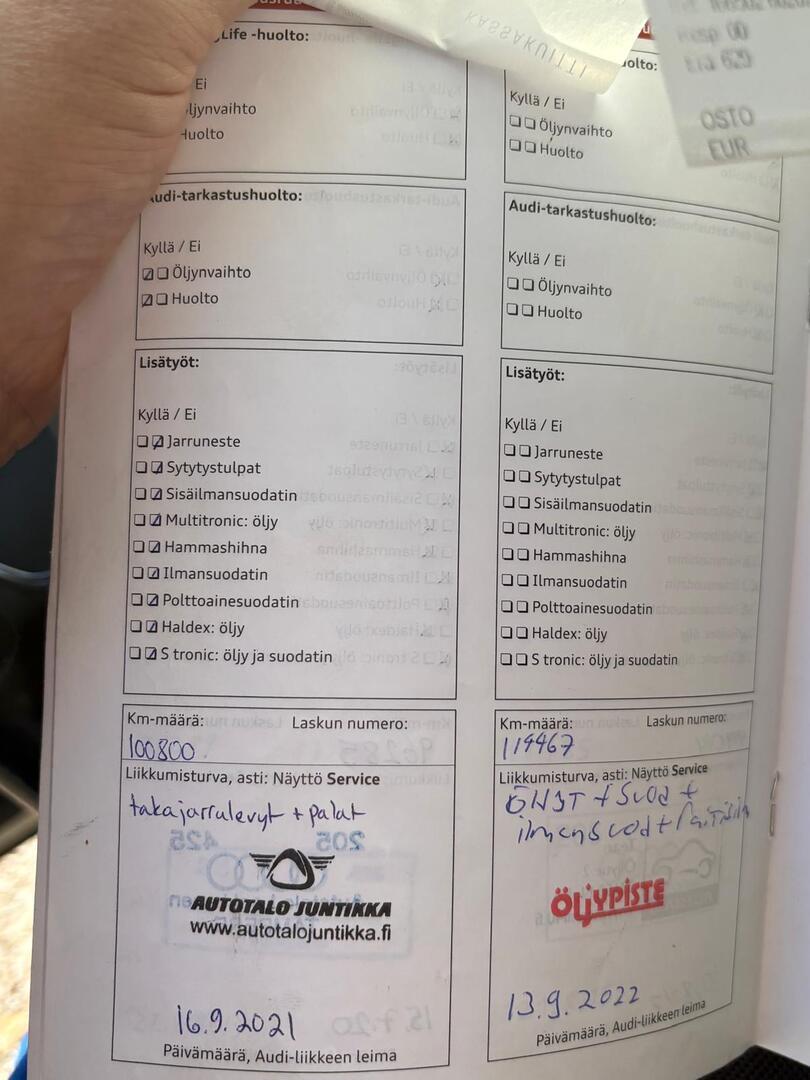 KASSAKUITTI
620
OSTO
EUR
Life -huolto:
Ei
Huolto
Audi-tarkastushuolto:
Kyllä / Ei
Öljynvaihto
Huolto
Lisätyöt:
Kyllä / Ei
Jarruneste
Sytytystulpat
Sisäilmansuodatin
Multitronic: öljy
Hammashihna
Ilmansuodatin
Polttoainesuodatin
Haldex: öljy
S tronic: öljy ja suodatin
Km-määrä: Laskun numero:
100800
Liikkumisturva, asti: Näyttö Service
takajarrulevyt + palat
AUTOTALO JUNTIKKA
www.autotalojuntikka.fi
16.9.2021
Päivämäärä, Audi-liikkeen leima
Kyllä / Ei
Öljynvaihto
Huolto
Audi-tarkastushuolto:
Kyllä / Ei
Öljynvaihto
Huolto
Lisätyöt:
Kyllä / Ei
Jarruneste
Sytytystulpat
Sisäilmansuodatin
Multitronic: öljy
Hammashihna
Ilmansuodatin
Polttoainesuodatin
Haldex: öljy
S tronic: öljy ja suodatin
Km-määrä: Laskun numero:
119467
Liikkumisturva, asti: Näyttö Service
ÖLJYPISTE
13.9.2022
Päivämäärä, Audi-liikkeen leima